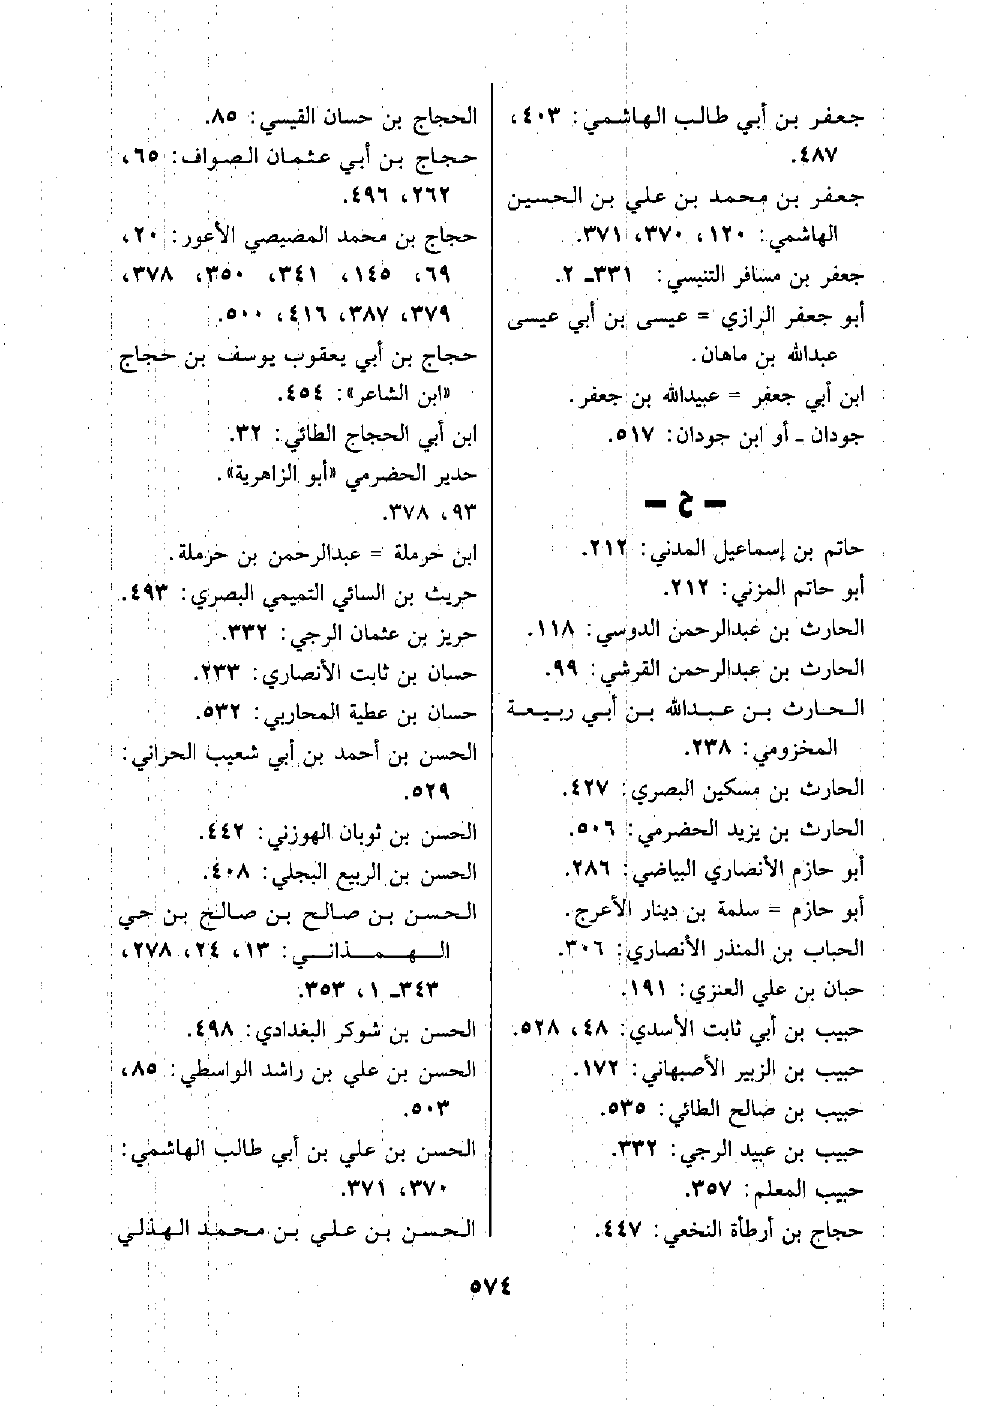 جعفر بن أبي طالب الهاشمي: ٤٠٣،
٤٨٧.
جعفر بن محمد بن علي بن الحسين
الهاشمي: ١٢٠، ٣٧٠، ٣٧١.
جعفر بن مسافر التنيسي: ٣٣١ـ ٢.
أبو جعفر الرازي = عيسى بن أبي عيسى
عبدالله بن ماهان.
ابن أبي جعفر = عبيدالله بن جعفر.
جودان ـ أو ابن جودان: ٥١٧.
– ح –
حاتم بن إسماعيل المدني: ٢١٢.
أبو حاتم المزني: ٢١٢.
الحارث بن عبدالرحمن الدوسي: ١١٨.
الحارث بن عبدالرحمن القرشي: ٩٩.
الحارث بن عبدالله بن أبي ربيعة
المخزومي: ٢٣٨.
الحارث بن مسكين البصري: ٤٢٧.
الحارث بن يزيد الحضرمي: ٥٠٦.
أبو حازم الأنصاري البياضي: ٢٨٦.
أبو حازم = سلمة بن دينار الأعرج.
الحباب بن المنذر الأنصاري: ٣٠٦.
حبان بن علي العنزي: ١٩١.
حبيب بن أبي ثابت الأسدي: ٤٨، ٥٢٨.
حبيب بن الزبير الأصبهاني: ١٧٢.
حبيب بن صالح الطائي: ٥٣٥.
حبيب بن عبيد الرجي: ٣٣٢.
حبيب المعلم: ٣٥٧.
حجاج بن أرطأة النخعي: ٤٤٧.
الحجاج بن حسان القيسي: ٨٥.
حجاج بن أبي عثمان الصواف: ٦٥،
٢٦٢، ٤٩٦.
حجاج بن محمد المضيصي الأعور: ٢٠،
٦٩، ١٤٥، ٣٤١، ٣٥٠، ٣٧٨،
٣٧٩، ٣٨٧، ٤١٦، ٥٠٠.
حجاج بن أبي يعقوب يوسف بن حجاج
«ابن الشاعر»: ٤٥٤.
ابن أبي الحجاج الطائي: ٣٢.
حدير الحضرمي «أبو الزاهرية».
٩٣، ٣٧٨.
ابن حرملة = عبدالرحمن بن حرملة.
حريث بن السائي التميمي البصري: ٤٩٣.
حريز بن عثمان الرجي: ٣٣٢.
حسان بن ثابت الأنصاري: ٢٣٣.
حسان بن عطية المحاربي: ٥٣٢.
الحسن بن أحمد بن أبي شعيب الحراني:
٥٢٩.
الحسن بن ثوبان الهوزني: ٤٤٢.
الحسن بن الربيع البجلي: ٤٠٨.
الحسن بن صالح بن صالح بن حي
الهمذاني: ١٣، ٢٤، ٢٧٨،
٣٤٣ـ ١، ٣٥٣.
الحسن بن شوكر البغدادي: ٤٩٨.
الحسن بن علي بن راشد الواسطي: ٨٥،
٥٠٣.
الحسن بن علي بن أبي طالب الهاشمي:
٣٧٠، ٣٧١.
الحسن بن علي بن محمد الهذلي
٥٧٤